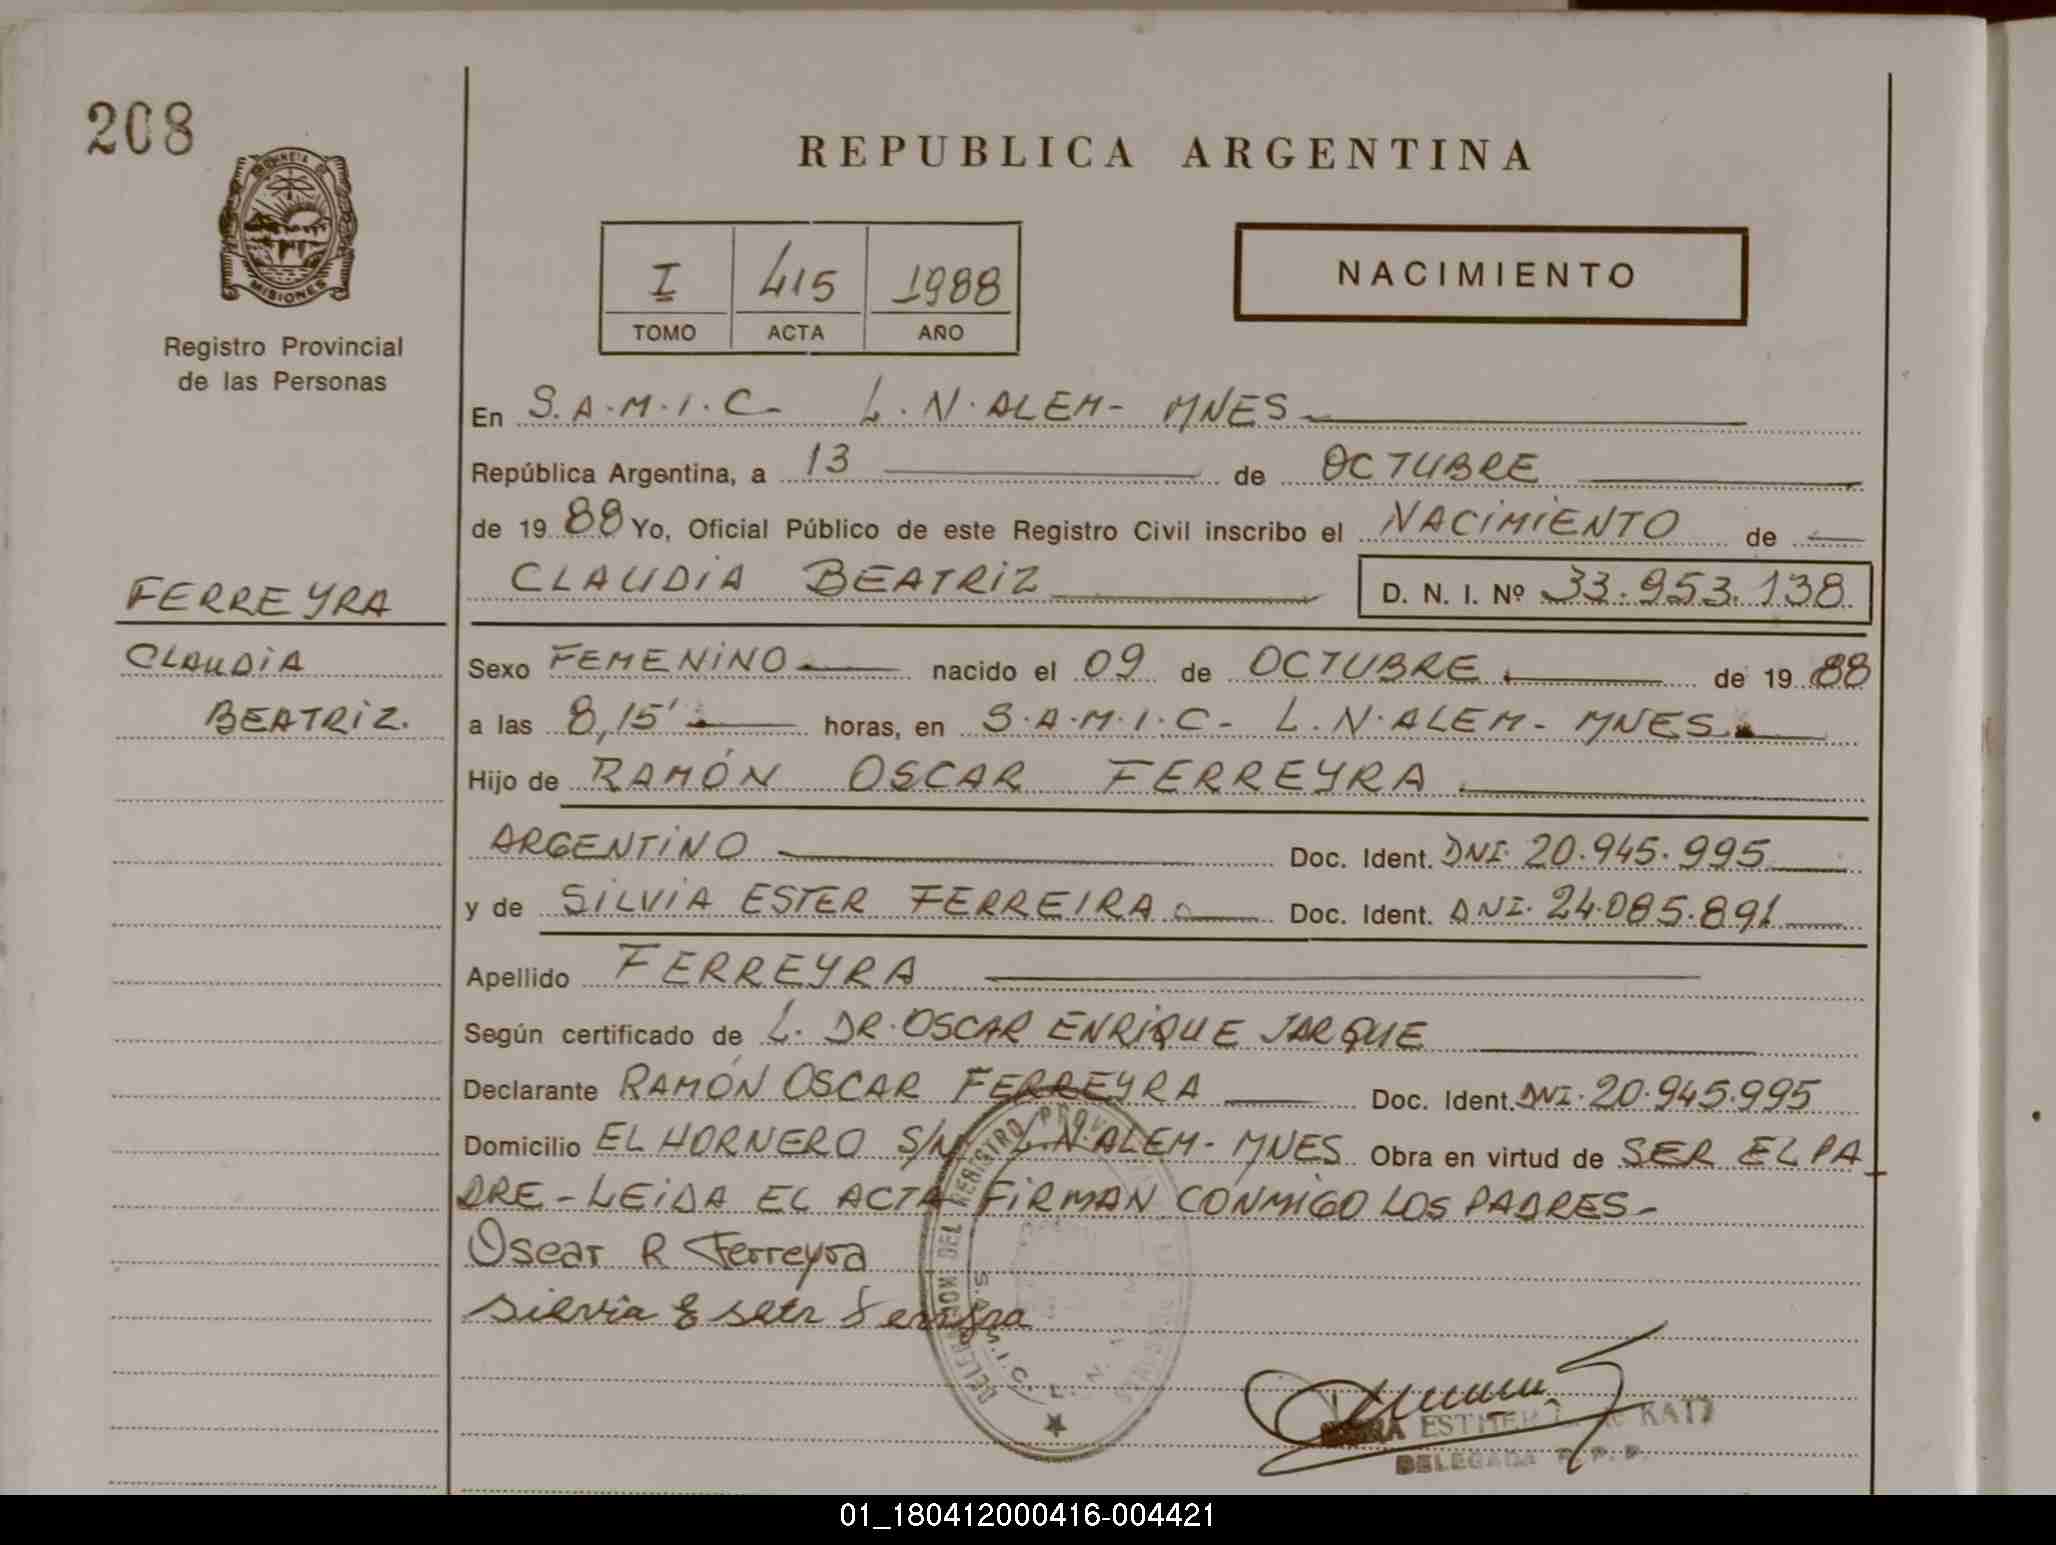 208
PROVINCIA DE
MISIONES
Registro Provincial
de las Personas
REPUBLICA ARGENTINA
I 415 1988
TOMO ACTA AÑO
NACIMIENTO
En S.A.M.I.C- L.N.ALEM- MNES
República Argentina, a 13 de OCTUBRE
de 1988 Yo, Oficial Público de este Registro Civil inscribo el NACIMIENTO de
CLAUDIA BEATRIZ D. N. I. Nº 33.953.138
FERREYRA
CLAUDIA
BEATRIZ.
Sexo FEMENINO nacido el 09 de OCTUBRE de 1988
a las 8,15' horas, en S.A.M.I.C- L.N.ALEM- MNES
Hijo de RAMÓN OSCAR FERREYRA
ARGENTINO Doc. Ident. DNI. 20.945.995
y de SILVIA ESTER FERREIRA Doc. Ident. DNI. 24.085.891
Apellido FERREYRA
Según certificado de L. DR. OSCAR ENRIQUE JARQUE
Declarante RAMÓN OSCAR FERREYRA Doc. Ident. DNI. 20.945.995
Domicilio EL HORNERO S/N L.N.ALEM- MNES Obra en virtud de SER EL PA
DRE - LEIDA EL ACTA FIRMAN CONMIGO LOS PADRES-
Oscar R Ferreyra
silvia Ester
DEL REGISTRO
S.A.M.I.C. L. N.
ESTHER KATZ
DELEGADA R. P. P.
01_180412000416-004421